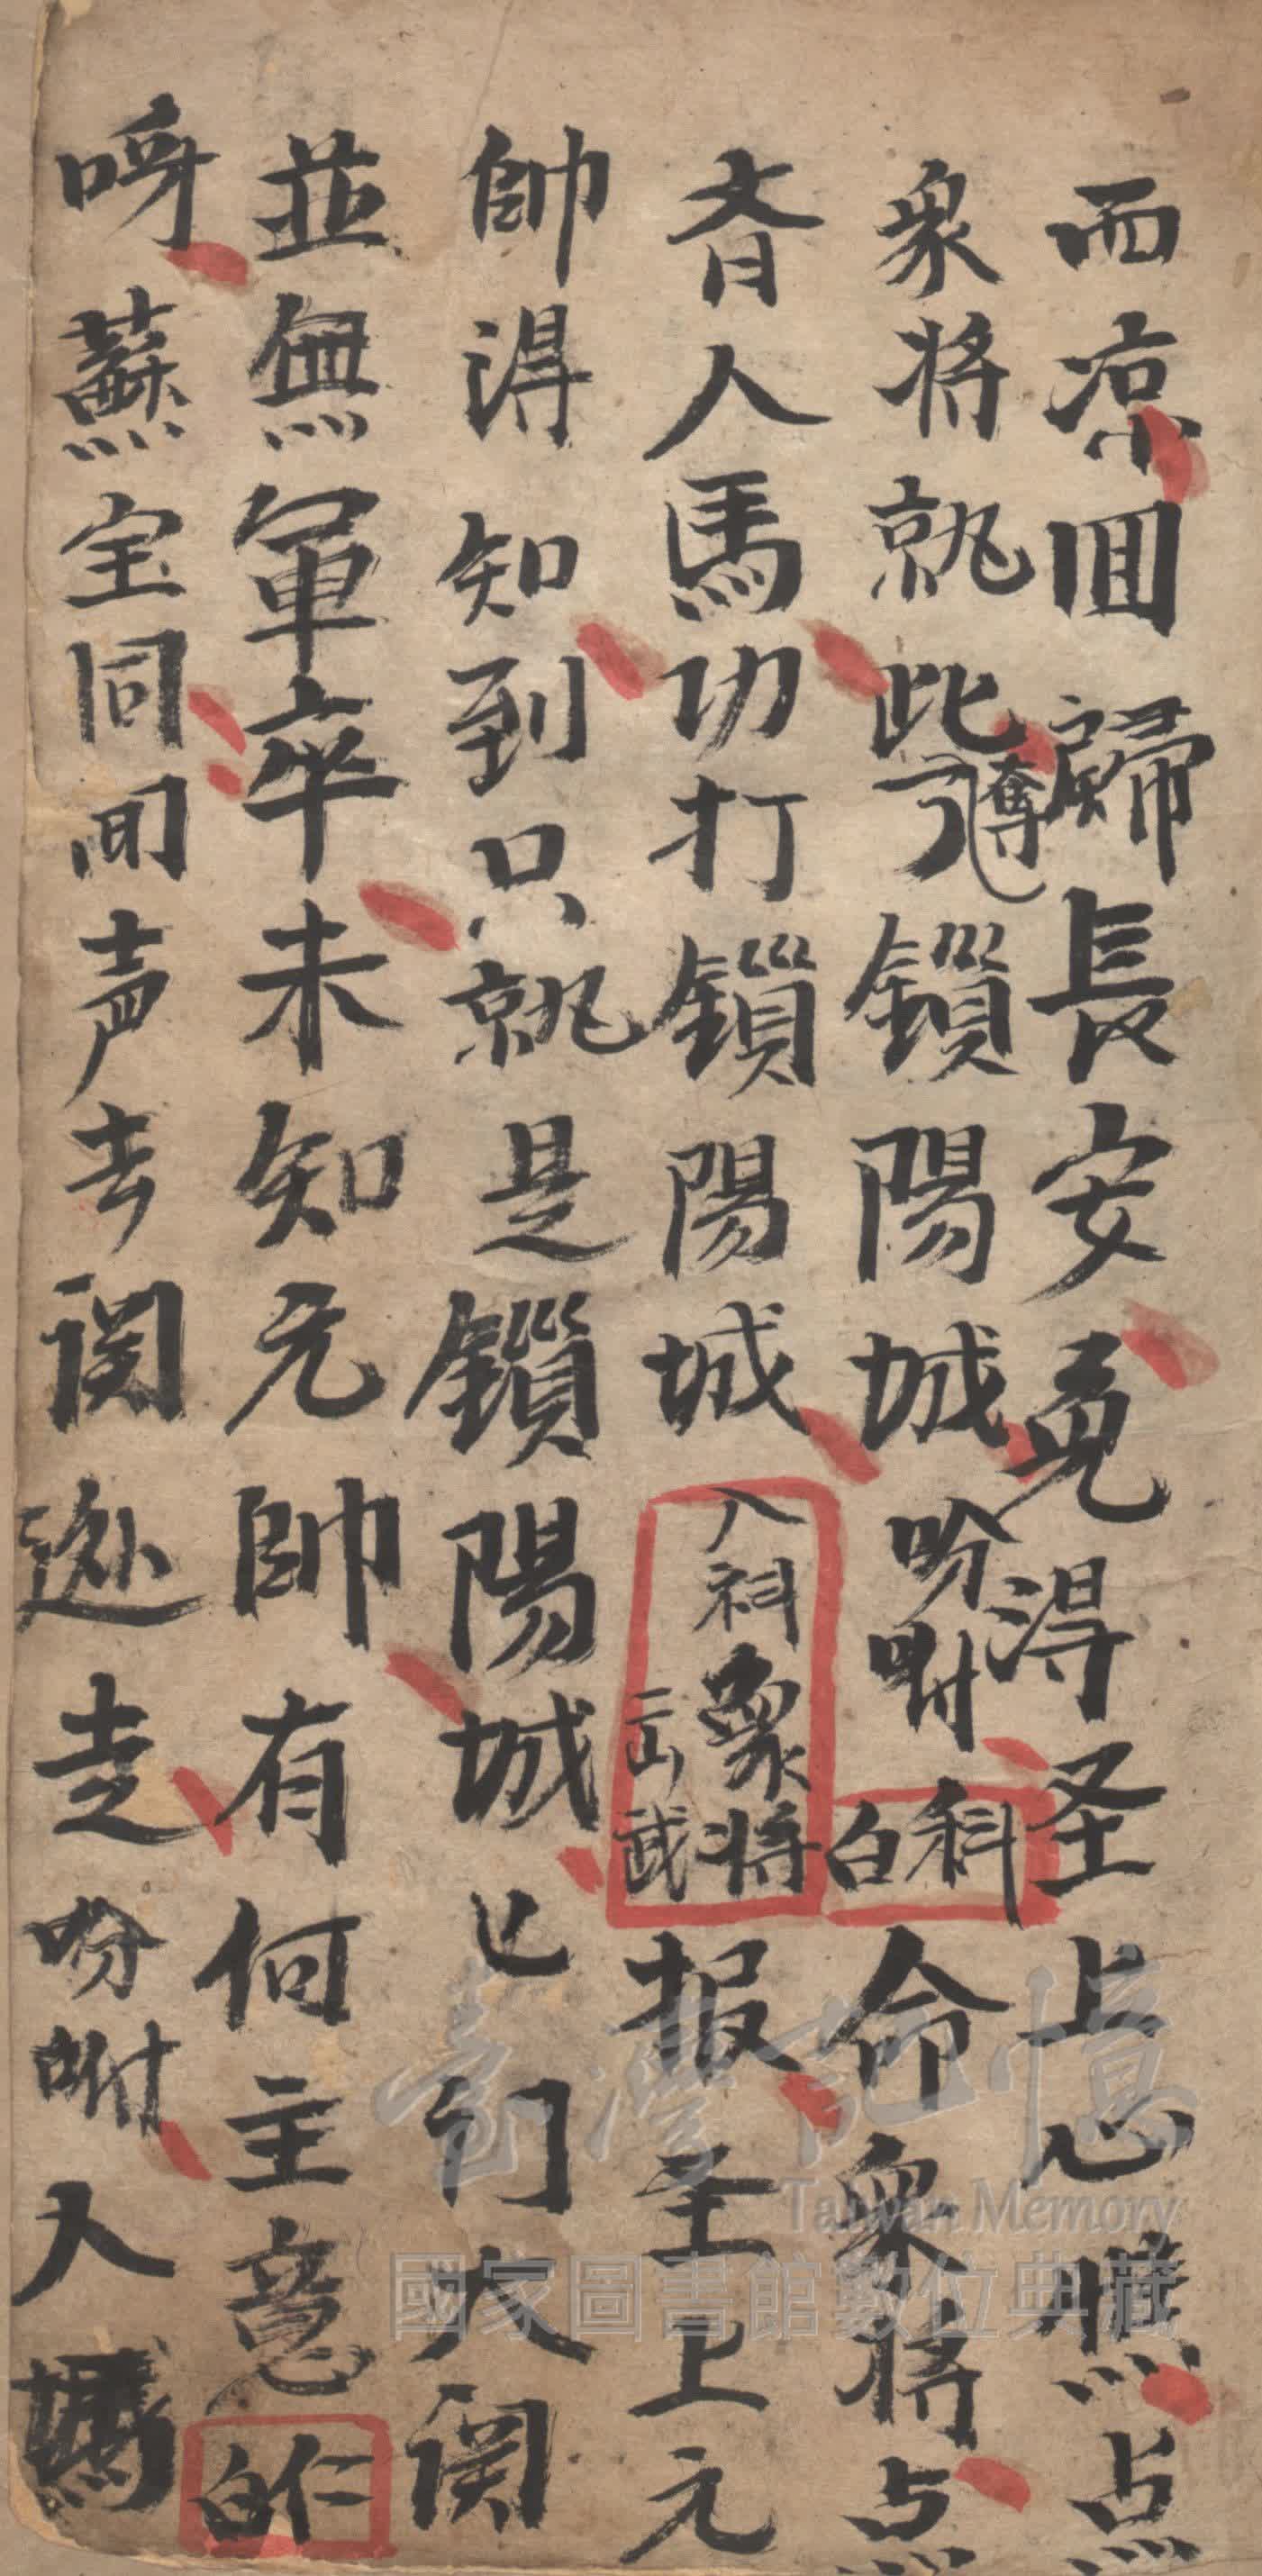 西凉回歸長安免得圣上心憔点
衆將就此奪了鎖陽城吩咐科白命衆將点
齐人馬功打鎖陽城入科衆將二山武报圣上元
帥得知到只就是鎖陽城已门大開
並無軍卒未知元帥有何主意仁白
呀蘇宝同闻声去関逃走吩咐人馬
臺灣記憶
Taiwan Memory
國家圖書館數位典藏